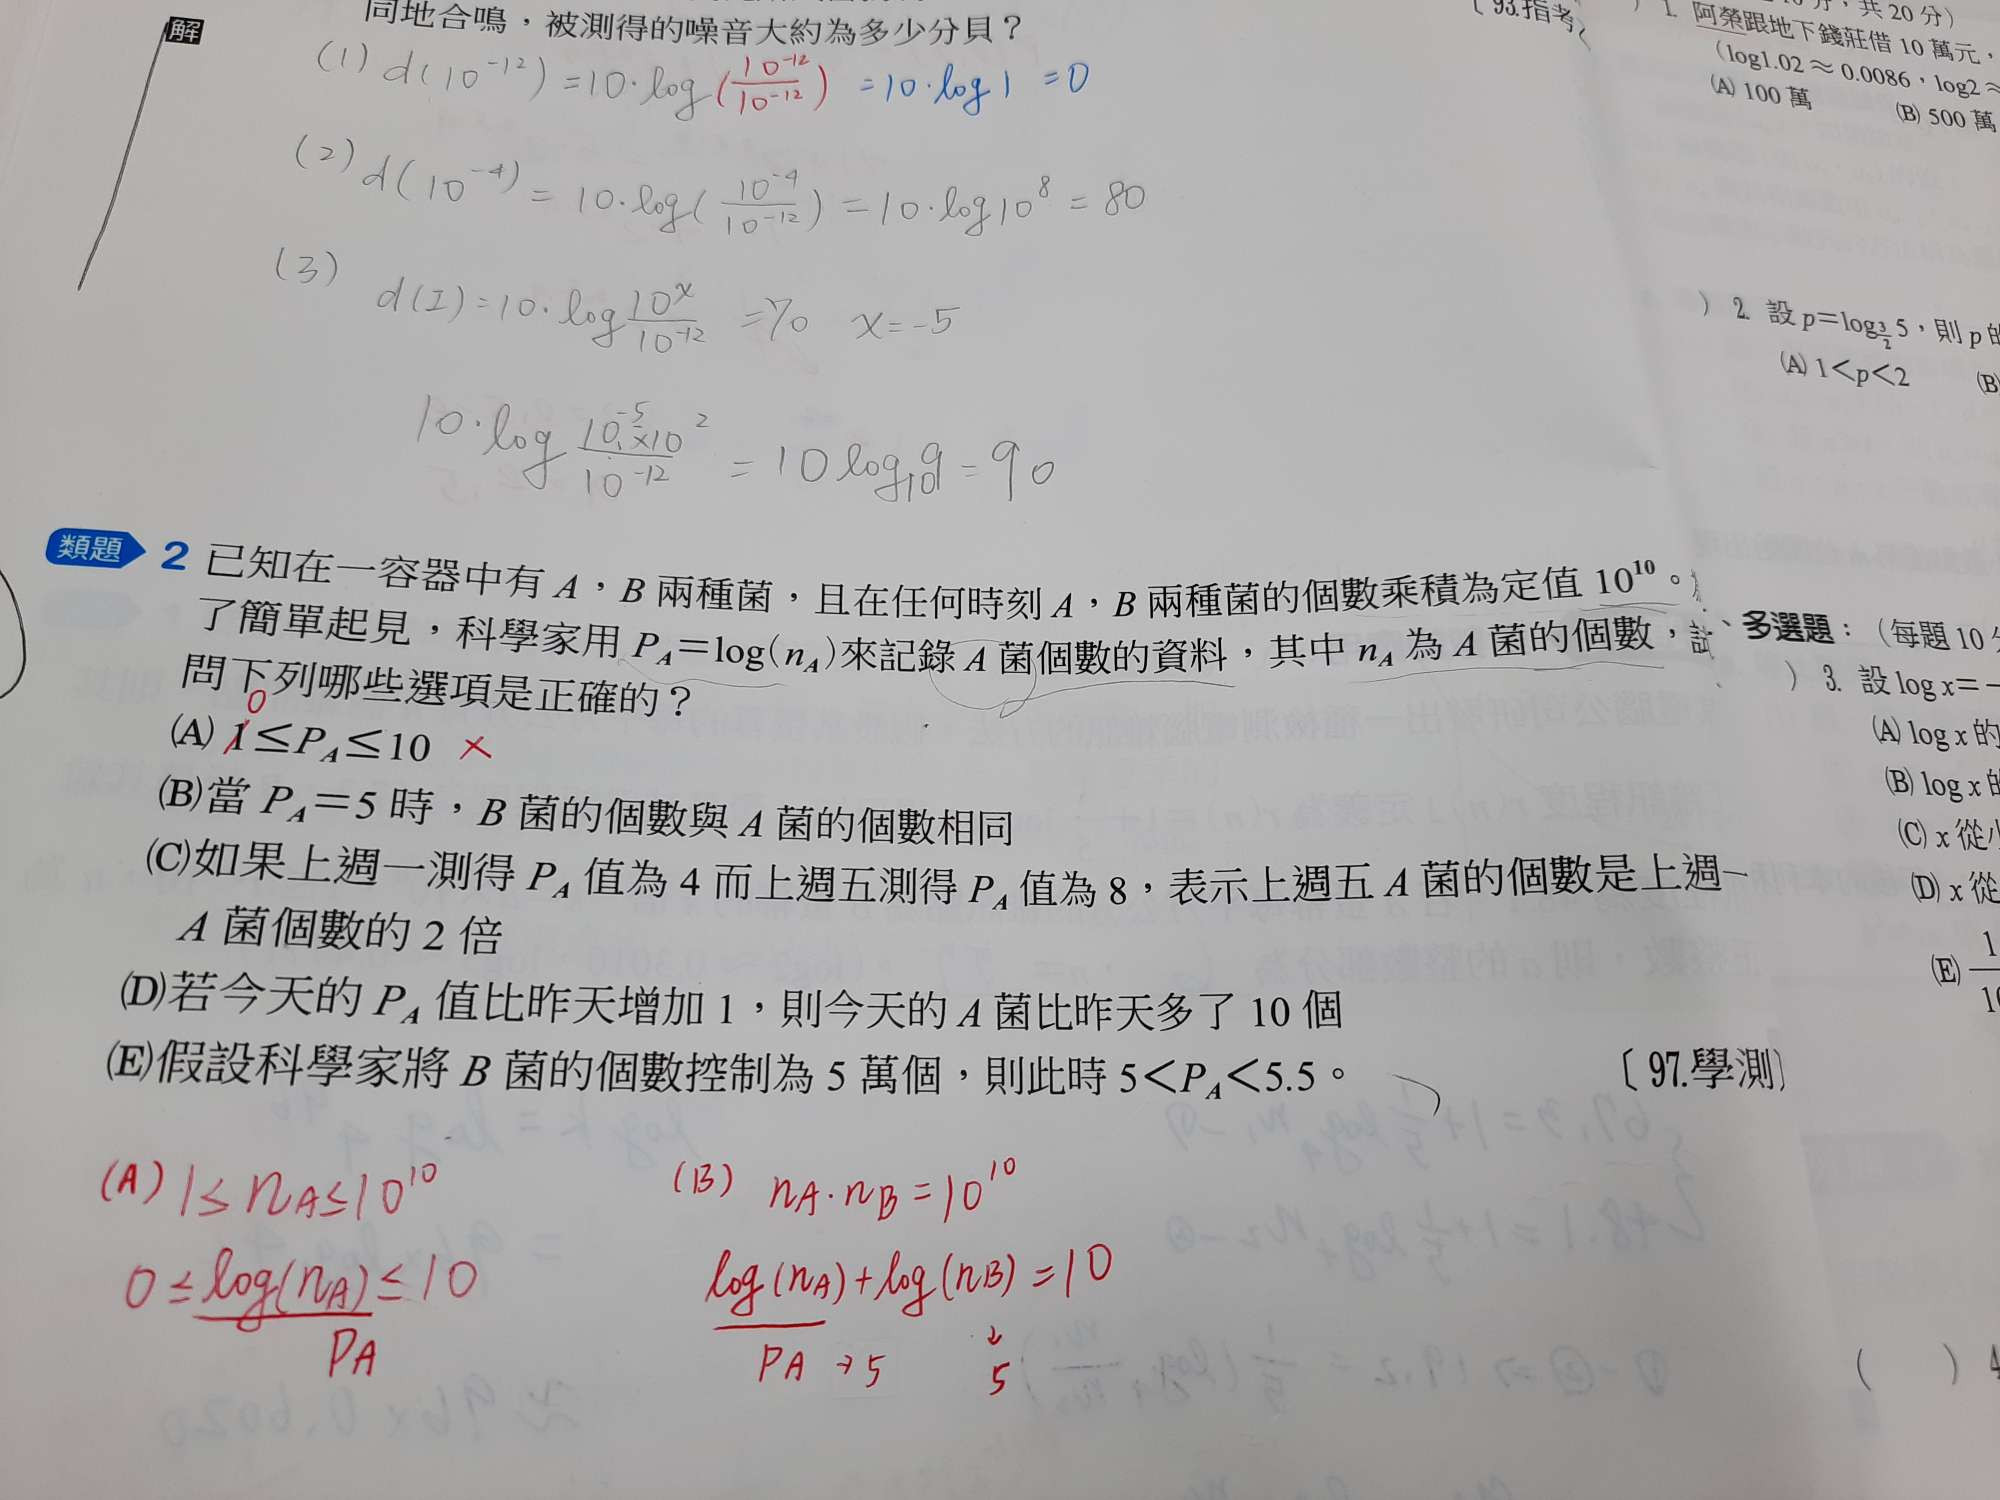 同地合鳴，被測得的噪音大約為多少分貝？
解
(1) d(10⁻¹²) = 10·log(10⁻¹²/10⁻¹²) = 10·log1 = 0
(2) d(10⁻⁴) = 10·log(10⁻⁴/10⁻¹²) = 10·log10⁸ = 80
(3)
d(I) = 10·log 10ˣ/10⁻¹² = 70 x = -5
10·log 10⁻⁵×10²/10⁻¹² = 10 log10⁹ = 90
類題 2 已知在一容器中有 A，B 兩種菌，且在任何時刻 A，B 兩種菌的個數乘積為定值 10¹⁰。
了簡單起見，科學家用 P_A＝log(n_A)來記錄 A 菌個數的資料，其中 n_A 為 A 菌的個數，試
問下列哪些選項是正確的？
0
(A) 1≤P_A≤10 ×
(B)當 P_A＝5 時，B 菌的個數與 A 菌的個數相同
(C)如果上週一測得 P_A 值為 4 而上週五測得 P_A 值為 8，表示上週五 A 菌的個數是上週一
A 菌個數的 2 倍
(D)若今天的 P_A 值比昨天增加 1，則今天的 A 菌比昨天多了 10 個
(E)假設科學家將 B 菌的個數控制為 5 萬個，則此時 5＜P_A＜5.5。
〔97.學測〕
(A) 1≤n_A≤10¹⁰
0≤log(n_A)≤10
P_A
(B) n_A·n_B=10¹⁰
log(n_A)+log(n_B)=10
P_A→5 5
〔93.指考〕
，共 20 分）
) 1. 阿榮跟地下錢莊借 10 萬元，
（log1.02≈0.0086，log2≈
(A) 100 萬 (B) 500 萬
) 2. 設 p＝log_{3/2}5，則 p 的
(A) 1＜p＜2 (B)
、多選題：（每題 10 分
) 3. 設 log x＝－
(A) log x 的
(B) log x 的
(C) x 從小
(D) x 從
(E) 1/10
( ) 4